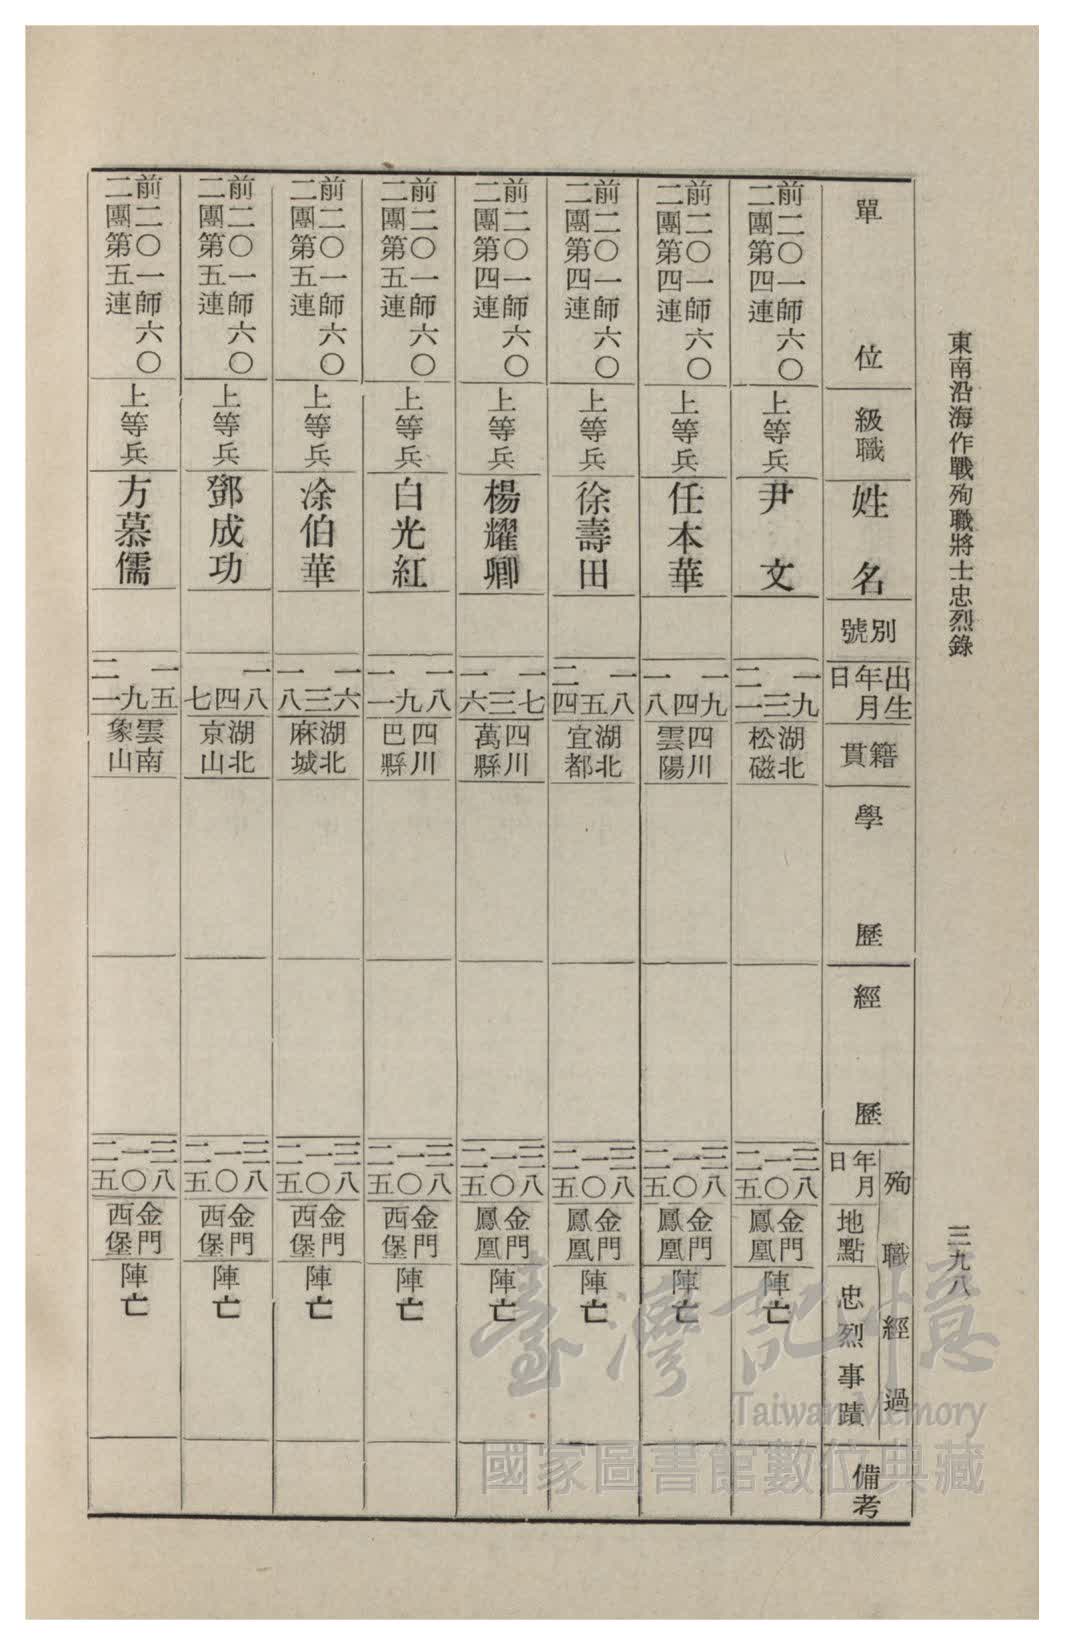 東南沿海作戰殉職將士忠烈錄
三九八
單位
級職
姓名
別號
出生
年月
日
籍貫
學歷
經歷
殉職經過
年月
日
地點
忠烈事蹟
備考
前二〇一師六〇
二團第四連
上等兵
尹文
一九
三
二一
湖北
松磁
三八
一〇
二五
金門
鳳凰
陣亡
前二〇一師六〇
二團第四連
上等兵
任本華
一九
四
一八
四川
雲陽
三八
一〇
二五
金門
鳳凰
陣亡
前二〇一師六〇
二團第四連
上等兵
徐壽田
一八
五
二四
湖北
宜都
三八
一〇
二五
金門
鳳凰
陣亡
前二〇一師六〇
二團第四連
上等兵
楊耀卿
一七
三
一六
四川
萬縣
三八
一〇
二五
金門
鳳凰
陣亡
前二〇一師六〇
二團第五連
上等兵
白光紅
一八
九
一一
四川
巴縣
三八
一〇
二五
金門
西堡
陣亡
前二〇一師六〇
二團第五連
上等兵
凃伯華
一六
三
一八
湖北
麻城
三八
一〇
二五
金門
西堡
陣亡
前二〇一師六〇
二團第五連
上等兵
鄧成功
一八
四
七
湖北
京山
三八
一〇
二五
金門
西堡
陣亡
前二〇一師六〇
二團第五連
上等兵
方慕儒
一五
九
二一
雲南
象山
三八
一〇
二五
金門
西堡
陣亡
臺灣記憶
Taiwan Memory
國家圖書館數位典藏